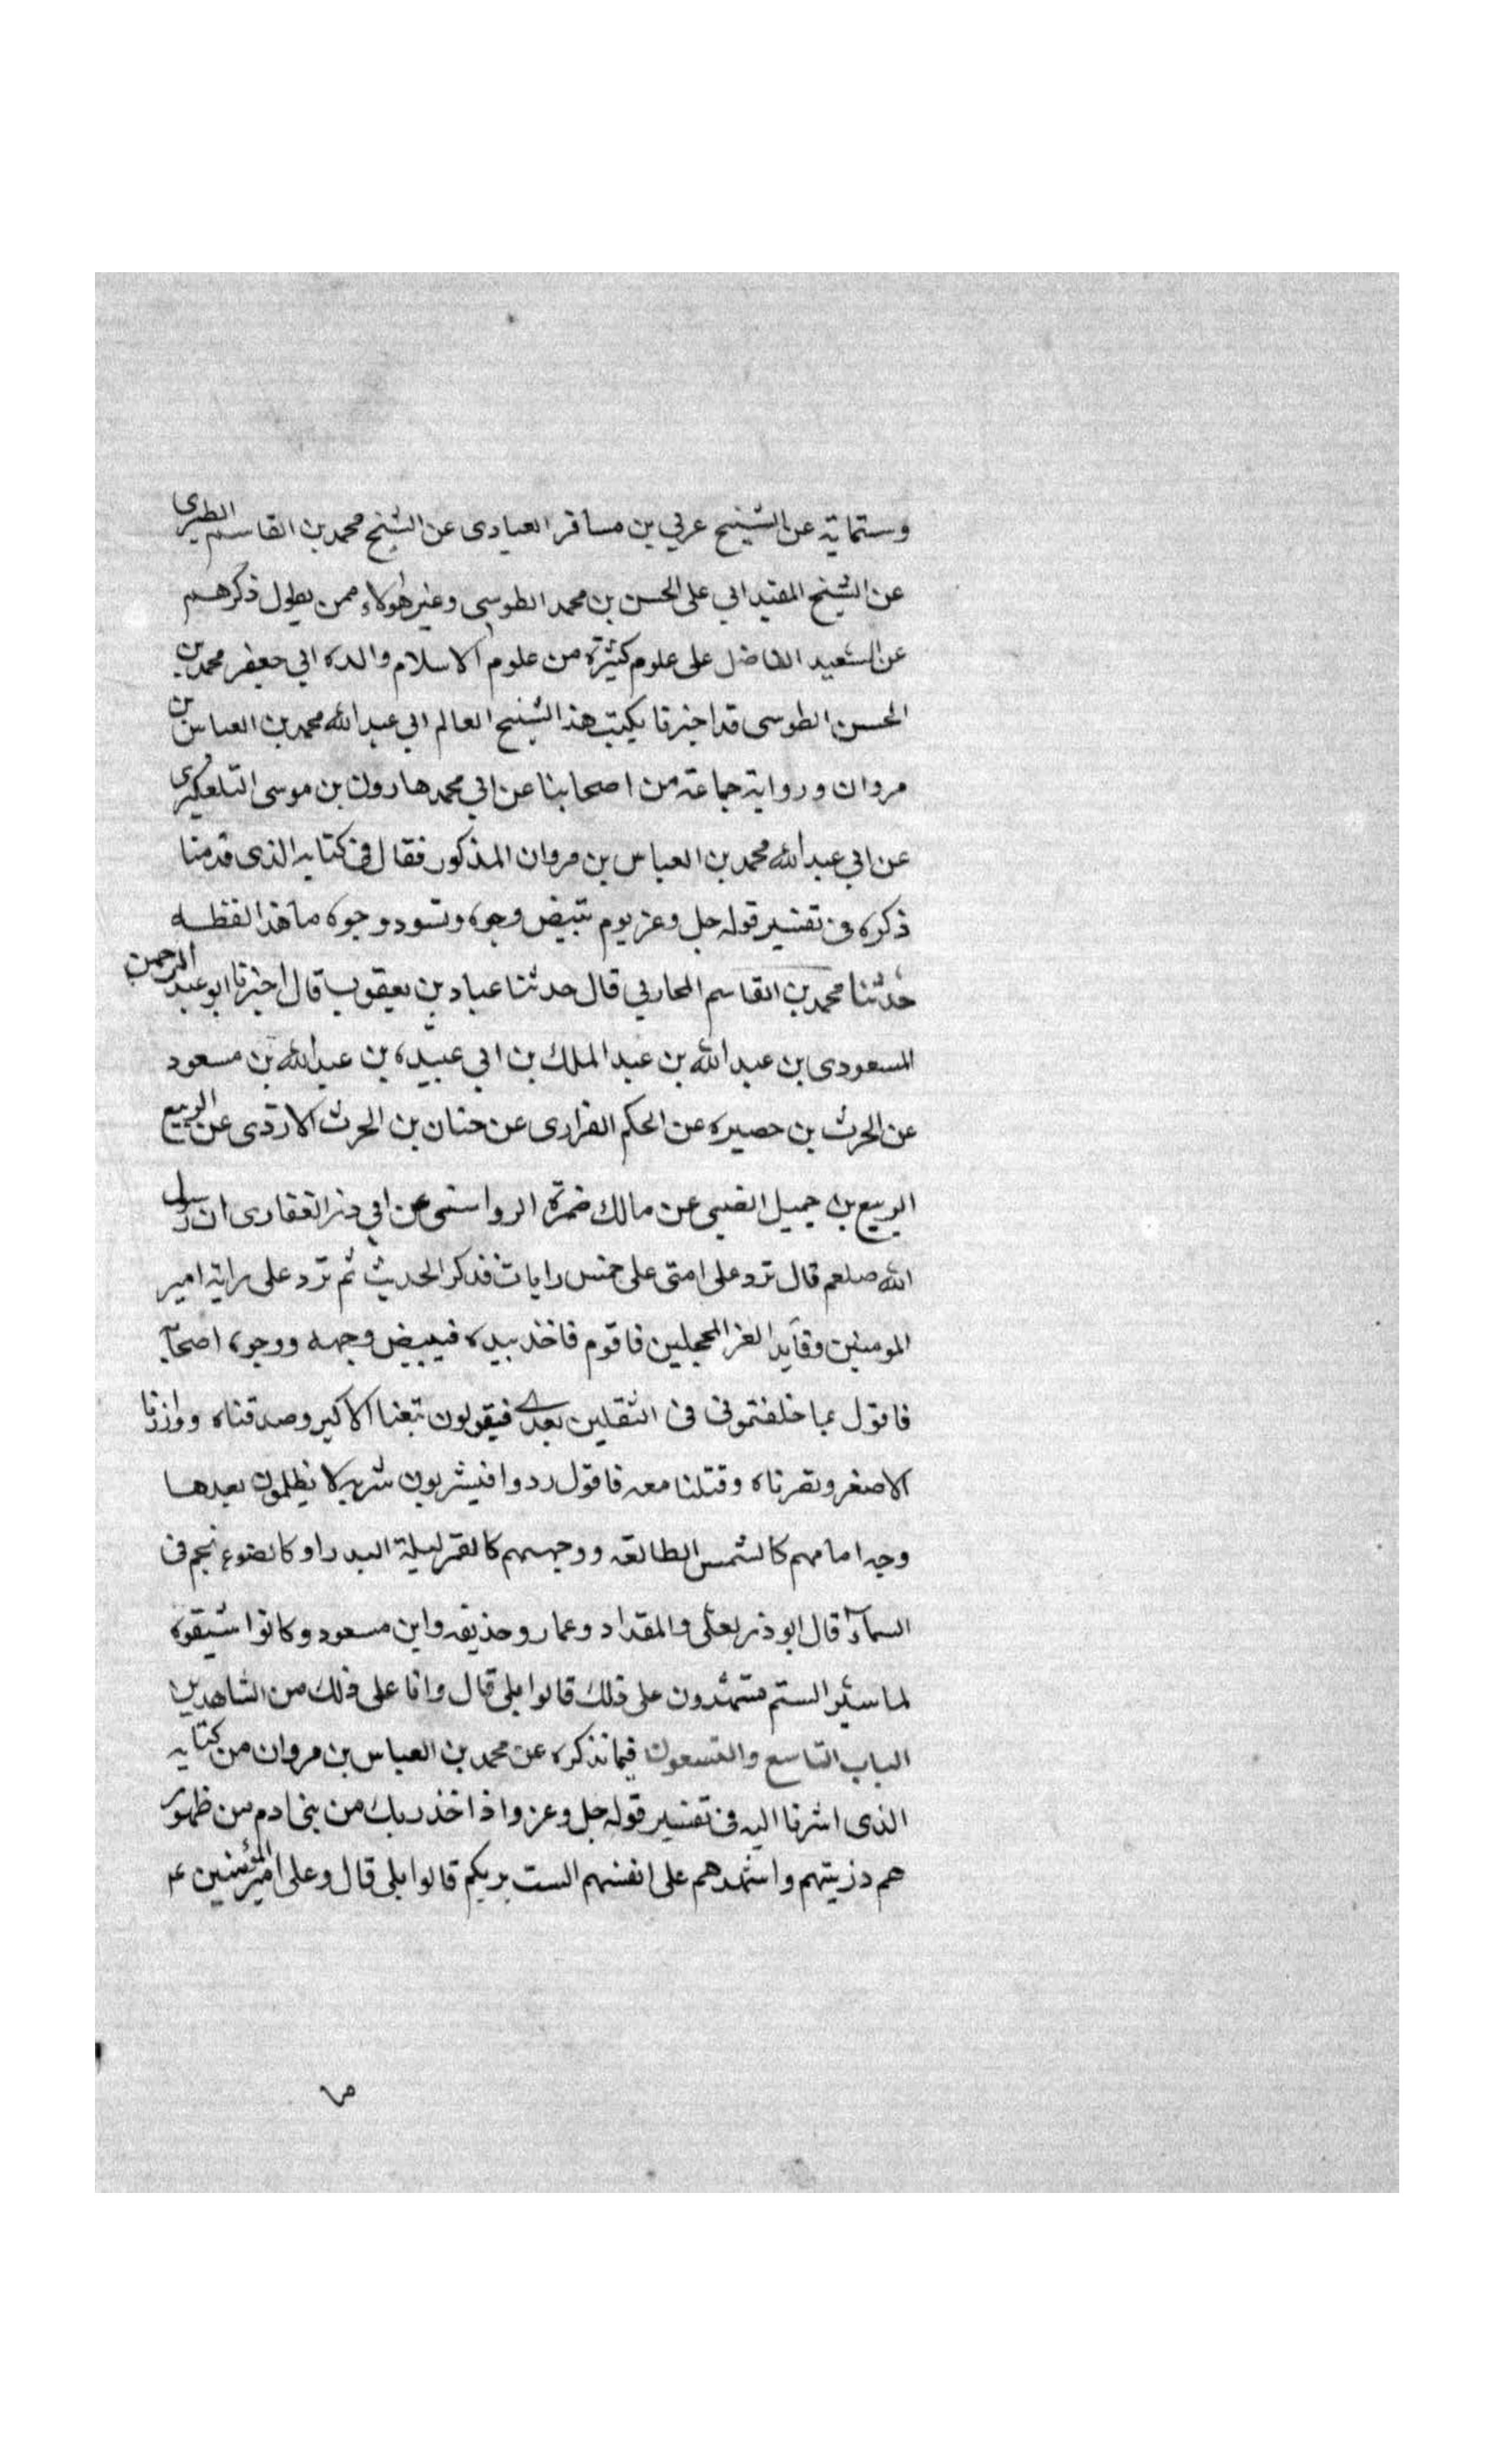 وستماية عن الشيخ عربي بن مسافر العبادى عن الشيخ محمد بن القاسم الطبرى
عن الشيخ المفيد ابي على الحسن بن محمد الطوسى وغير هولاء ممن يطول ذكرهم
عن السعيد الفاضل على علوم كثيرة من علوم الاسلام والده ابي جعفر محمد بن
الحسن الطوسى قد اخبرنا بكتب هذا الشيخ العالم ابي عبد الله محمد بن العباس بن
مروان ورواية جماعة من اصحابنا عن ابي محمد هارون بن موسى التلعكبرى
عن ابي عبد الله محمد بن العباس بن مروان المذكور فقال فى كتابه الذى قدمنا
ذكره فى تفسير قوله جل وعز يوم تبيض وجوه وتسود وجوه ما هذا لفظه
حدثنا محمد بن القاسم المحاربي قال حدثنا عباد بن يعقوب قال اخبرنا ابو عبد الرحمن
المسعودى بن عبد الله بن عبد الملك بن ابي عبيده بن عبد الله بن مسعود
عن الحرث بن حصيره عن الحكم الفزارى عن حنان بن الحرث الازدى عن الربيع
الربيع بن جميل الضبى عن مالك ضمرة الرواسى عن ابي ذر الغفارى ان رسول
الله صلعم قال ترد على امتى على خمس رايات فذكر الحديث ثم ترد على راية امير
المومنين وقايد الغر المحجلين فاقوم فاخذ بيده فيبيض وجهه ووجوه اصحابه
فاقول بما خلفتمونى فى الثقلين بعدى فيقولون تبعنا الاكبر وصدقناه ووازرنا
الاصغر ونصرناه وقتلنا معه فاقول ردوا فيشربون شربة لا يظمون بعدها
وجه امامهم كالشمس الطالعه ووجههم كالقمر ليلة البدر او كاضوء نجم فى
السماء قال ابو ذر لعلى والمقداد وعمار وحذيفه وابن مسعود وكانوا شيعوه
لما سير الستم تشهدون على ذلك قالوا بلى قال وانا على ذلك من الشاهدين
الباب التاسع والتسعون فيما نذكره عن محمد بن العباس بن مروان من كتابه
الذى اشرنا اليه فى تفسير قوله جل وعز واذ اخذ ربك من بنى ادم من ظهور
هم ذريتهم واشهدهم على انفسهم الست بربكم قالوا بلى قال وعلى امير المؤمنين ع